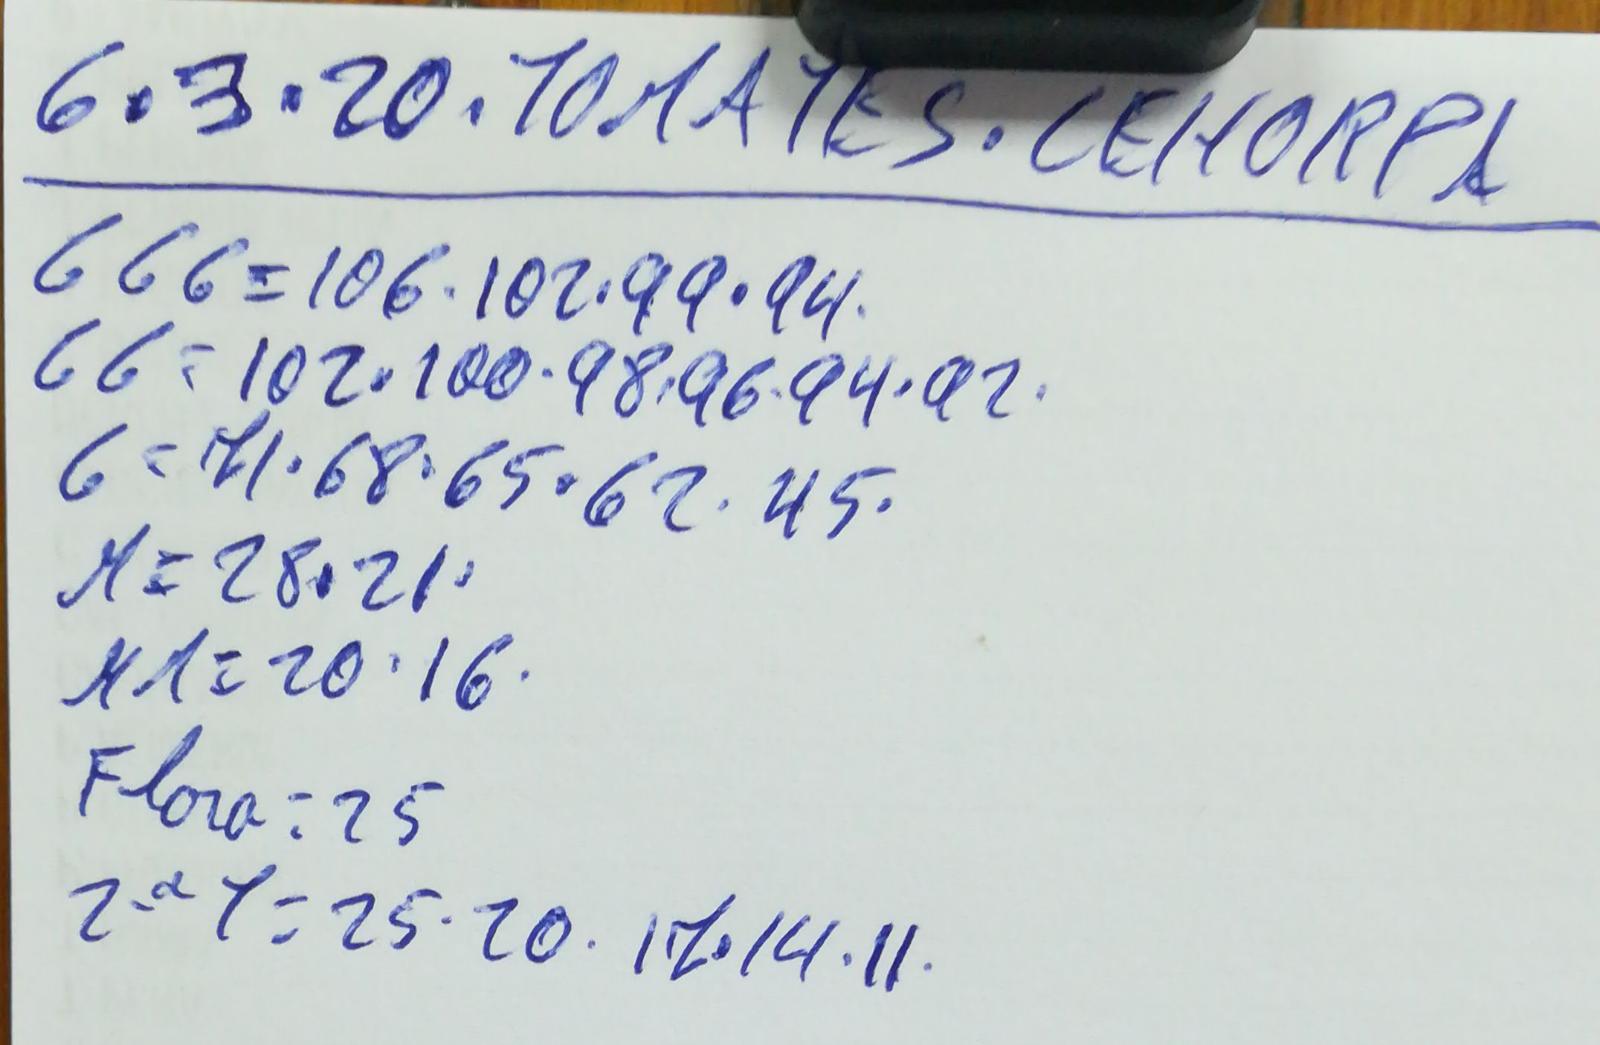 6.3.20.TOMATES.CEHORPA
GGG=106.102.99.94.
GG=102.100.98.96.94.92.
G=71.68.65.62.45.
M=28.21.
MM=20.16.
Flora=25
2ª T=25.20.17.14.11.